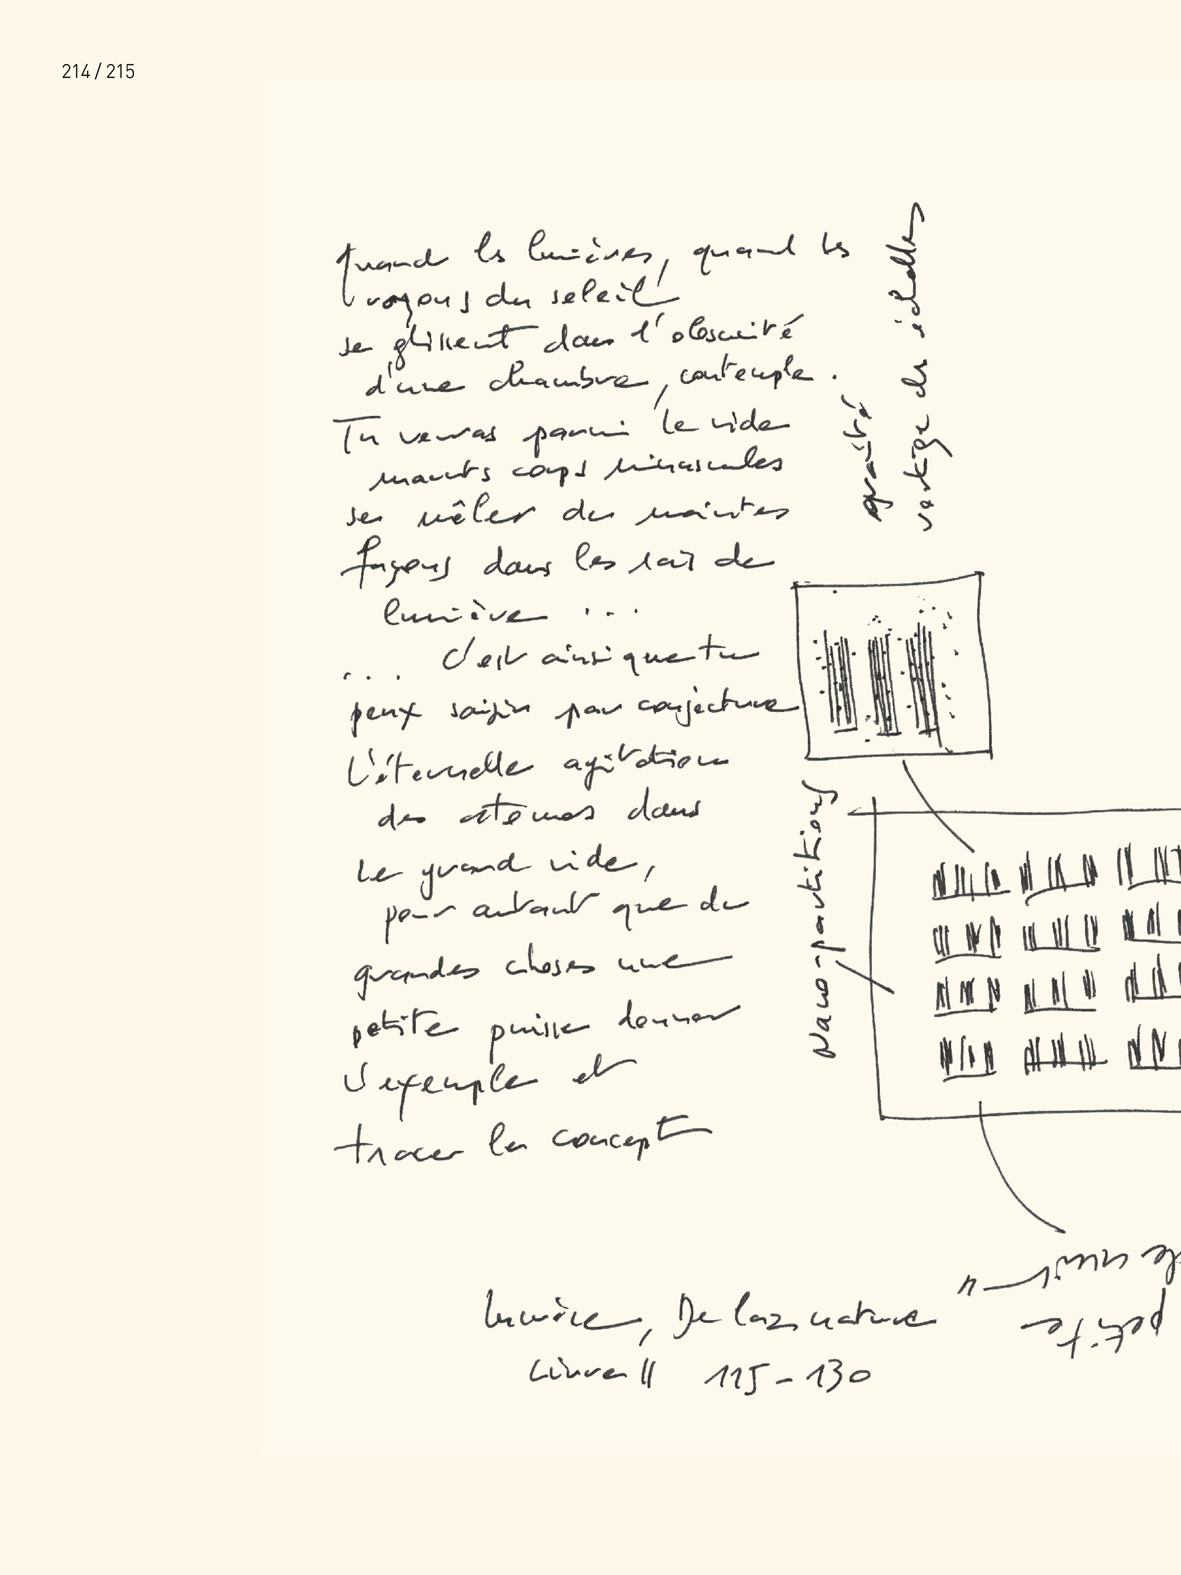 214 / 215
quand les lumières, quand les
rayons du soleil
se glissent dans l'obscurité
d'une chambre, contemple.
Tu verras parmi le vide
maints corps minuscules
se mêler de maintes
façons dans les rais de
lumière ...
... C'est ainsi que tu
peux saisir par conjecture
L'éternelle agitation
des atomes dans
le grand vide,
pour autant que de
grandes choses une
petite puisse donner
l'exemple et
tracer le concept
vertige des échelles
Nano-partitions
petite
de nuit
De la nature
Livre II 115-130